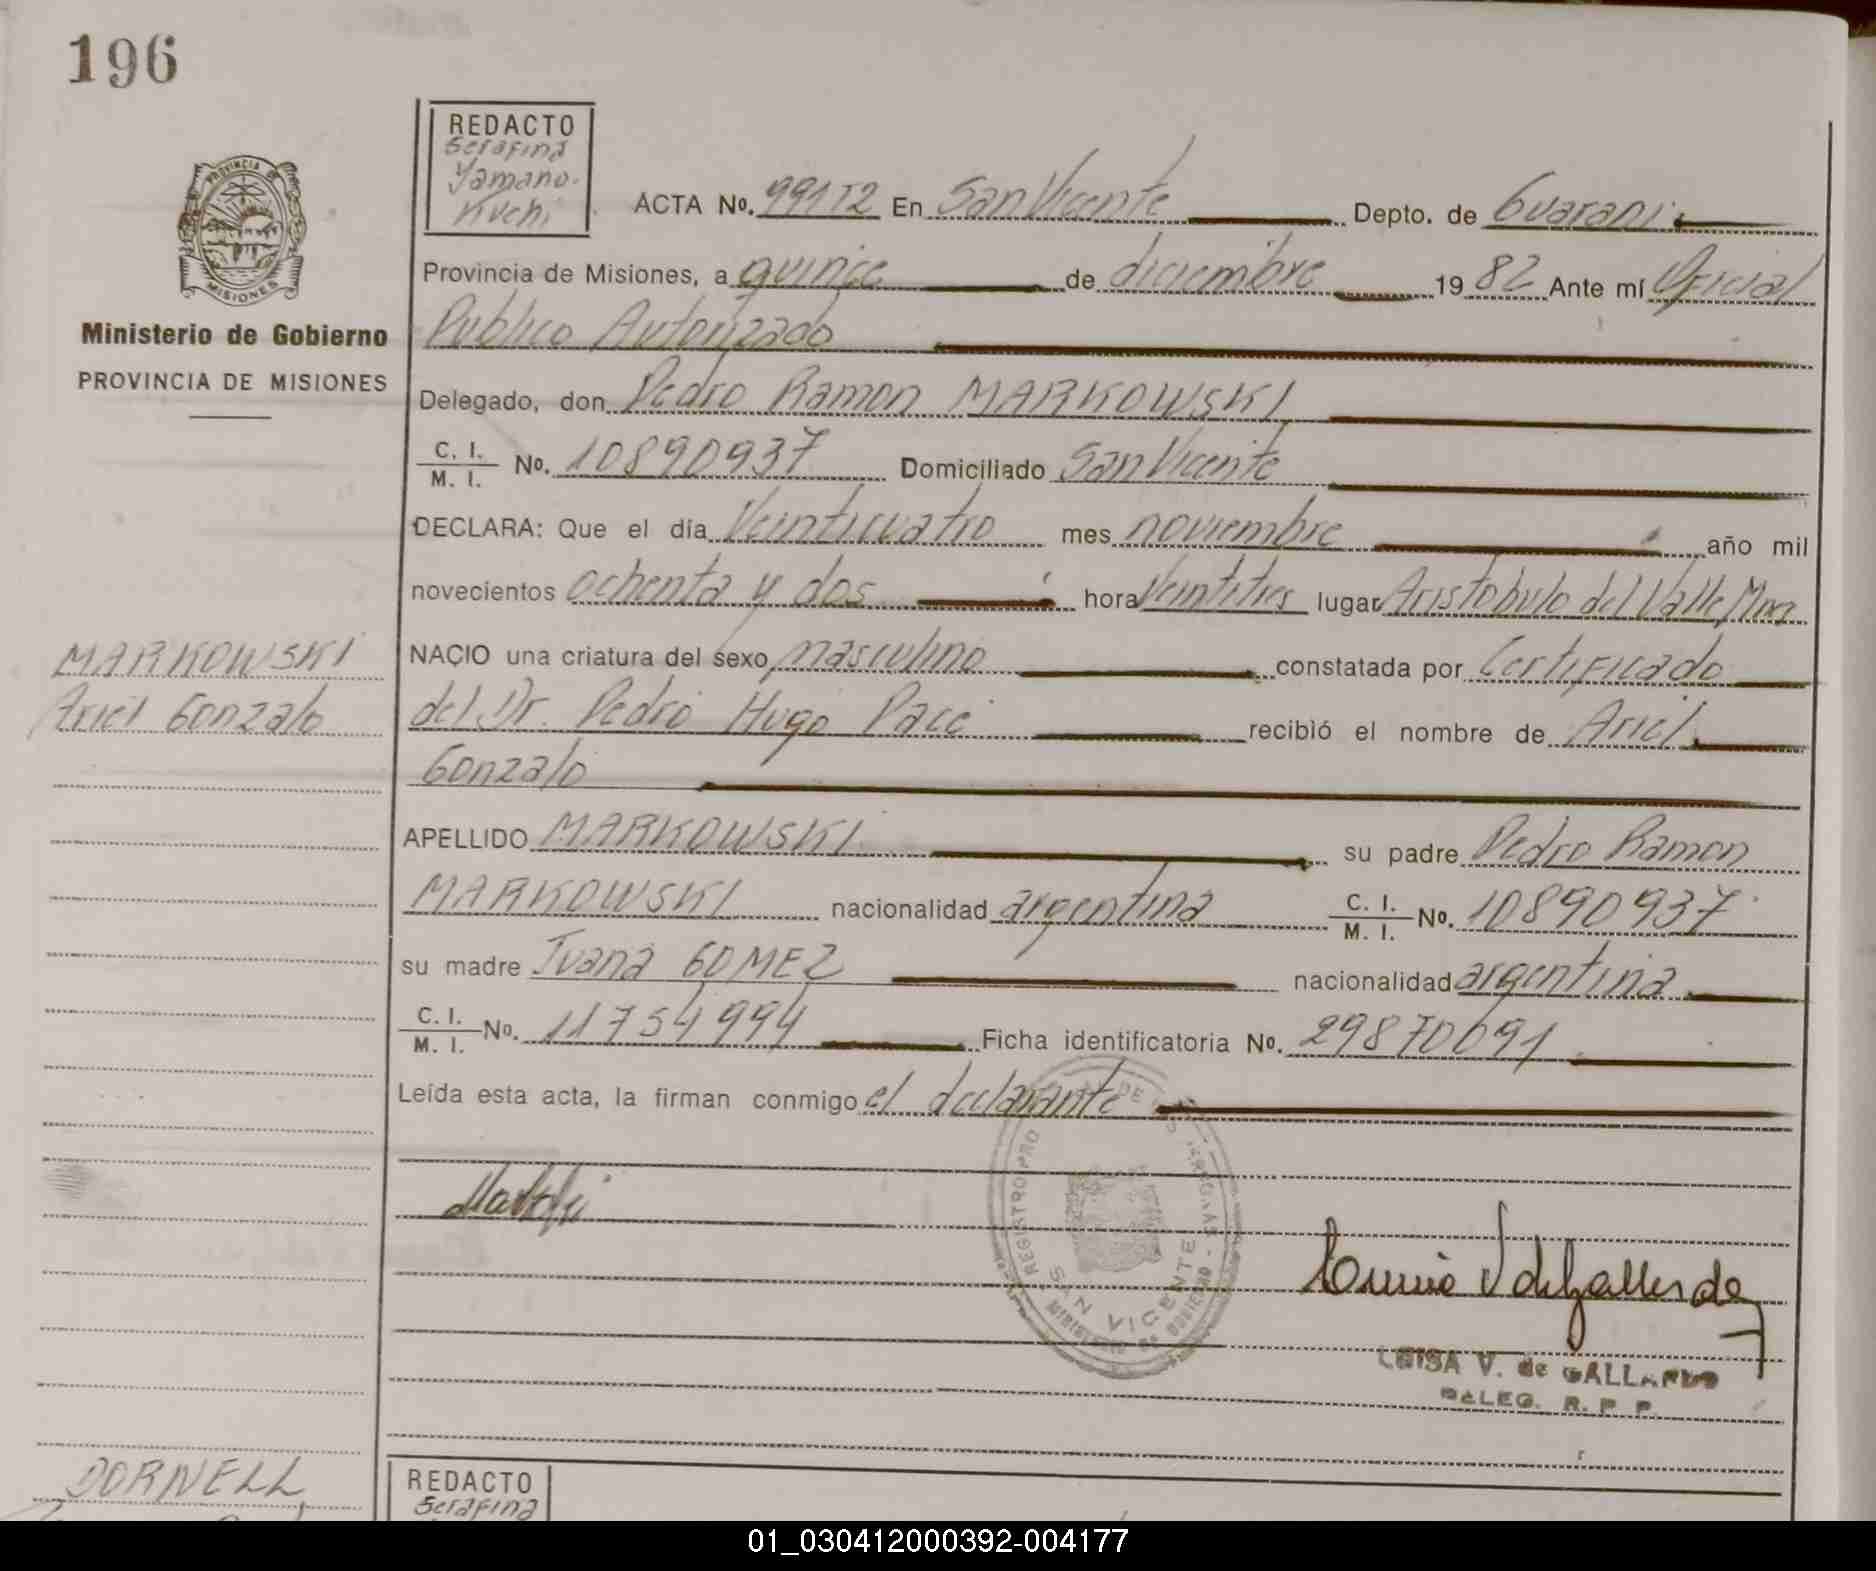 196
REDACTO
Serafina
Yamano-
Kuchi
PROVINCIA DE
MISIONES
Ministerio de Gobierno
PROVINCIA DE MISIONES
ACTA No. 991T2 En San Vicente Depto. de Guarani
Provincia de Misiones, a quince de diciembre 1982 Ante mí Oficial
Publico Autorizado
Delegado, don Pedro Ramon MARKOWSKI
C. I.
M. I. No. 10890937 Domiciliado San Vicente
DECLARA: Que el día Veinticuatro mes noviembre año mil
novecientos ochenta y dos hora Veintitres lugar Aristobulo del Valle, Mnes
NACIO una criatura del sexo masculino constatada por Certificado
del Dr. Pedro Hugo Pace recibió el nombre de Ariel
Gonzalo
MARKOWSKI
Ariel Gonzalo
APELLIDO MARKOWSKI su padre Pedro Ramon
MARKOWSKI nacionalidad argentina C. I.
M. I. No. 10890937
su madre Juana GOMEZ nacionalidad argentina
C. I.
M. I. No. 11754994 Ficha identificatoria No. 29870091
Leída esta acta, la firman conmigo el declarante
REGISTRO PRO DE LAS PERSONAS
SAN VICENTE
MINISTERIO DE GOBIERNO
LUISA V. de GALLARDO
DELEG. R. P. P.
DORNELL
REDACTO
Serafina
01_030412000392-004177